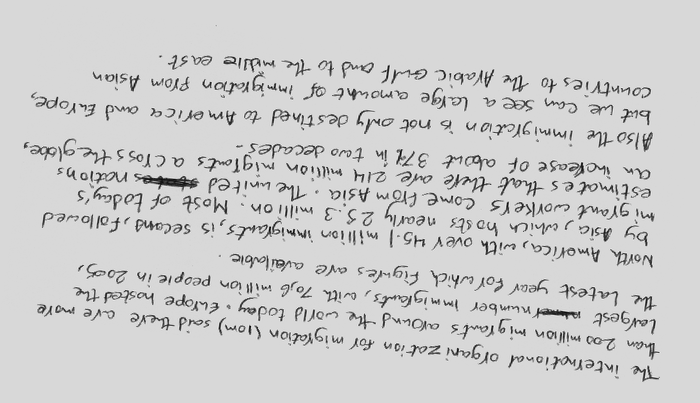 The international organization for migration (IOM) said there are more
than 200 million migrants around the world today. Europe hosted the
Largest number immigrants, with 70,6 million people in 2005,
the Latest year for which figures are available.
North America, with over 45.1 million immigrants, is second, followed
by Asia, which hosts nearly 25.3 million. Most of today's
migrant workers come from Asia. The united nations
estimates that there are 214 million migrants across the globe,
an increase of about 37% in two decades-
Also the immigration is not only destined to America and Europe,
but we can see a large amount of immigration from Asian
countries to the Arabic Gulf and to the middle east.